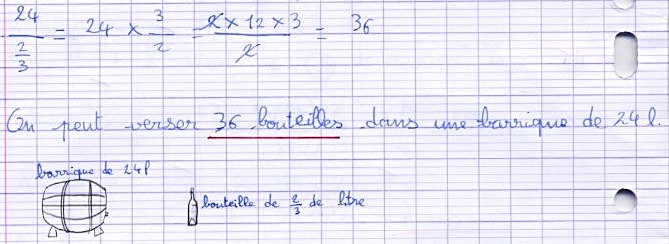 24 / (2/3) = 24 × 3/2 = (2 × 12 × 3)/2 = 36
On peut verser 36 bouteilles dans une barrique de 24 l.
barrique de 24 l
bouteille de 2/3 de litre